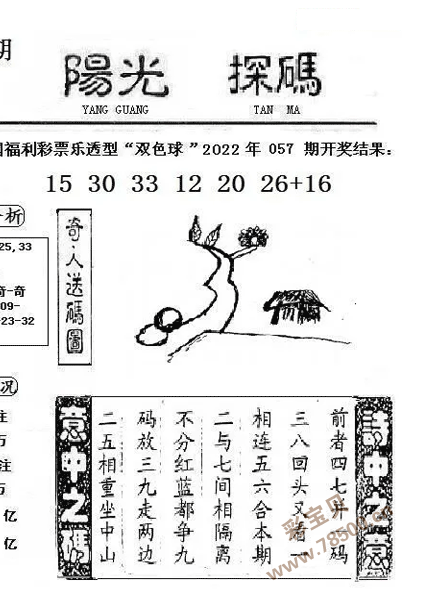 期
陽光 探碼
YANG GUANG TAN MA
国福利彩票乐透型“双色球”2022年057 期开奖结果：
15 30 33 12 20 26+16
分析
25,33
奇-奇
09-
-23-32
奇·人送碼圖
况
注
万
注
万
亿
亿
诗中之意
前者四七并一码
三八回头又看一
相连五六合本期
二与七间相隔离
不分红蓝都争九
码放三九走两边
二五相重坐中山
意中之碼
彩宝贝
www.78500.cn